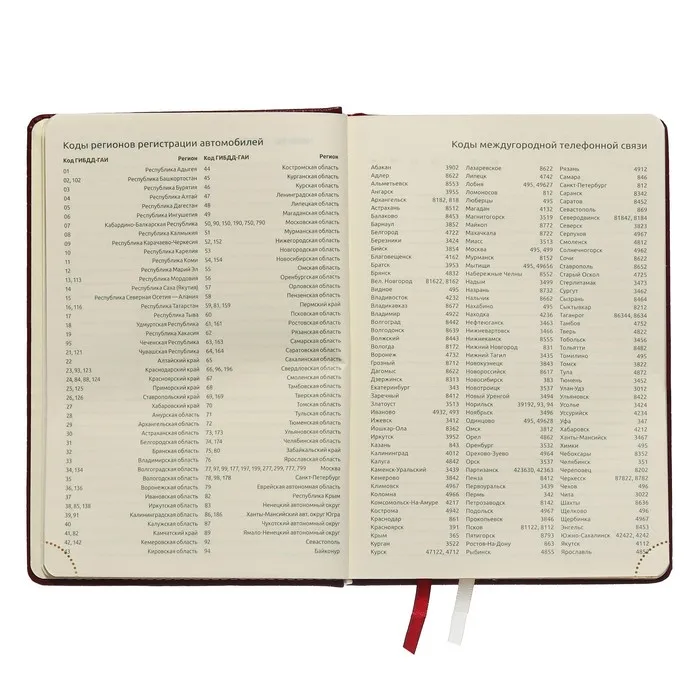 Коды регионов регистрации автомобилей
Код ГИБДД-ГАИ Регион
01 Республика Адыгея
02, 102 Республика Башкортостан
03 Республика Бурятия
04 Республика Алтай
05 Республика Дагестан
06 Республика Ингушетия
07 Кабардино-Балкарская Республика
08 Республика Калмыкия
09 Республика Карачаево-Черкесия
10 Республика Карелия
11 Республика Коми
12 Республика Марий Эл
13, 113 Республика Мордовия
14 Республика Саха (Якутия)
15 Республика Северная Осетия — Алания
16, 116 Республика Татарстан
17 Республика Тыва
18 Удмуртская Республика
19 Республика Хакасия
95 Чеченская Республика
21, 121 Чувашская Республика
22 Алтайский край
23, 93, 123 Краснодарский край
24, 84, 88, 124 Красноярский край
25, 125 Приморский край
26, 126 Ставропольский край
27 Хабаровский край
28 Амурская область
29 Архангельская область
30 Астраханская область
31 Белгородская область
32 Брянская область
33 Владимирская область
34, 134 Волгоградская область
35 Вологодская область
36, 136 Воронежская область
37 Ивановская область
38, 85, 138 Иркутская область
39, 91 Калининградская область
40 Калужская область
41, 82 Камчатский край
42, 142 Кемеровская область
43 Кировская область
Код ГИБДД-ГАИ Регион
44 Костромская область
45 Курганская область
46 Курская область
47 Ленинградская область
48 Липецкая область
49 Магаданская область
50, 90, 150, 190, 750, 790 Московская область
51 Мурманская область
52, 152 Нижегородская область
53 Новгородская область
54, 154 Новосибирская область
55 Омская область
56 Оренбургская область
57 Орловская область
58 Пензенская область
59, 81, 159 Пермский край
60 Псковская область
61, 161 Ростовская область
62 Рязанская область
63, 163 Самарская область
64, 164 Саратовская область
65 Сахалинская область
66, 96, 196 Свердловская область
67 Смоленская область
68 Тамбовская область
69, 169 Тверская область
70 Томская область
71 Тульская область
72 Тюменская область
73, 173 Ульяновская область
74, 174 Челябинская область
75, 80 Забайкальский край
76 Ярославская область
77, 97, 99, 177, 197, 199, 277, 299, 777, 799 Москва
78, 98, 178 Санкт-Петербург
79 Еврейская автономная область
82 Республика Крым
83 Ненецкий автономный округ
86, 186 Ханты-Мансийский авт. округ Югра
87 Чукотский автономный округ
89 Ямало-Ненецкий автономный округ
92 Севастополь
94 Байконур
Коды междугородной телефонной связи
Абакан 3902
Адлер 8622
Альметьевск 8553
Ангарск 3955
Архангельск 8182, 818
Астрахань 8512
Балаково 8453
Барнаул 3852
Белгород 4722
Березники 3424
Бийск 3854
Благовещенск 4162
Братск 3953
Брянск 4832
Вел. Новгород 81622, 8162
Видное 495
Владивосток 4232
Владикавказ 8672
Владимир 4922
Волгоград 8442
Волгодонск 8639
Волжский 8443
Вологда 8172
Воронеж 4732
Грозный 8712
Дагомыс 8622
Дзержинск 8313
Екатеринбург 343
Заречный 8412
Златоуст 3513
Иваново 4932, 493
Ижевск 3412
Йошкар-Ола 8362
Иркутск 3952
Казань 843
Калининград 4012
Калуга 4842
Каменск-Уральский 3439
Кемерово 3842
Климовск 4967
Коломна 4966
Комсомольск-На-Амуре 4217
Кострома 4942
Краснодар 861
Красноярск 391
Крым 365
Курган 3522
Курск 47122, 4712
Лазаревское 8622
Липецк 4742
Лобня 495, 49627
Ломоносов 812
Люберцы 495
Магадан 4132
Магнитогорск 3519
Майкоп 8772
Махачкала 8722
Миасс 3513
Москва 495, 499
Мурманск 8152
Мытищи 495, 49656
Набережные Челны 8552
Надым 3499
Назрань 8732
Нальчик 8662
Находка 4236
Нефтеюганск 3463
Нижневартовск 3466
Нижнекамск 8555
Нижний Новгород 831
Нижний Тагил 3435
Новокузнецк 3843
Новороссийск 8617
Новосибирск 383
Новый Уренгой 3494
Норильск 39192, 93, 94
Ноябрьск 3496
Одинцово 495, 49628
Омск 3812
Орел 4862
Оренбург 3532
Орехово-Зуево 4964
Орск 3537
Партизанск 423630, 42363
Пенза 8412
Первоуральск 3439
Пермь 342
Петрозаводск 8142
Подольск 4967
Прокопьевск 3846
Псков 81122, 8112
Пятигорск 8793
Ростов-На-Дону 863
Рыбинск 4855
Рязань 4912
Самара 846
Санкт-Петербург 812
Саранск 8342
Саратов 8452
Севастополь 869
Североморск 81842, 8184
Северск 3823
Серпухов 4967
Смоленск 4812
Солнечногорск 4962
Сочи 8622
Ставрополь 8652
Старый Оскол 4725
Стерлитамак 3473
Сургут 3462
Сызрань 8464
Сыктывкар 8212
Таганрог 86344, 8634
Тамбов 4752
Тверь 4822
Тобольск 3456
Тольятти 8482
Томилино 495
Томск 3822
Тула 4872
Тюмень 3452
Улан-Удэ 3012
Ульяновск 8422
Усолье 3424
Уссурийск 4234
Уфа 347
Хабаровск 4212
Ханты-Мансийск 3467
Химки 495
Чебоксары 8352
Челябинск 351
Череповец 8202
Черкесск 87822, 8782
Чехов 496
Чита 3022
Шахты 8636
Щелково 496
Щербинка 4967
Энгельс 8453
Южно-Сахалинск 42422, 4242
Якутск 4112
Ярославль 4852